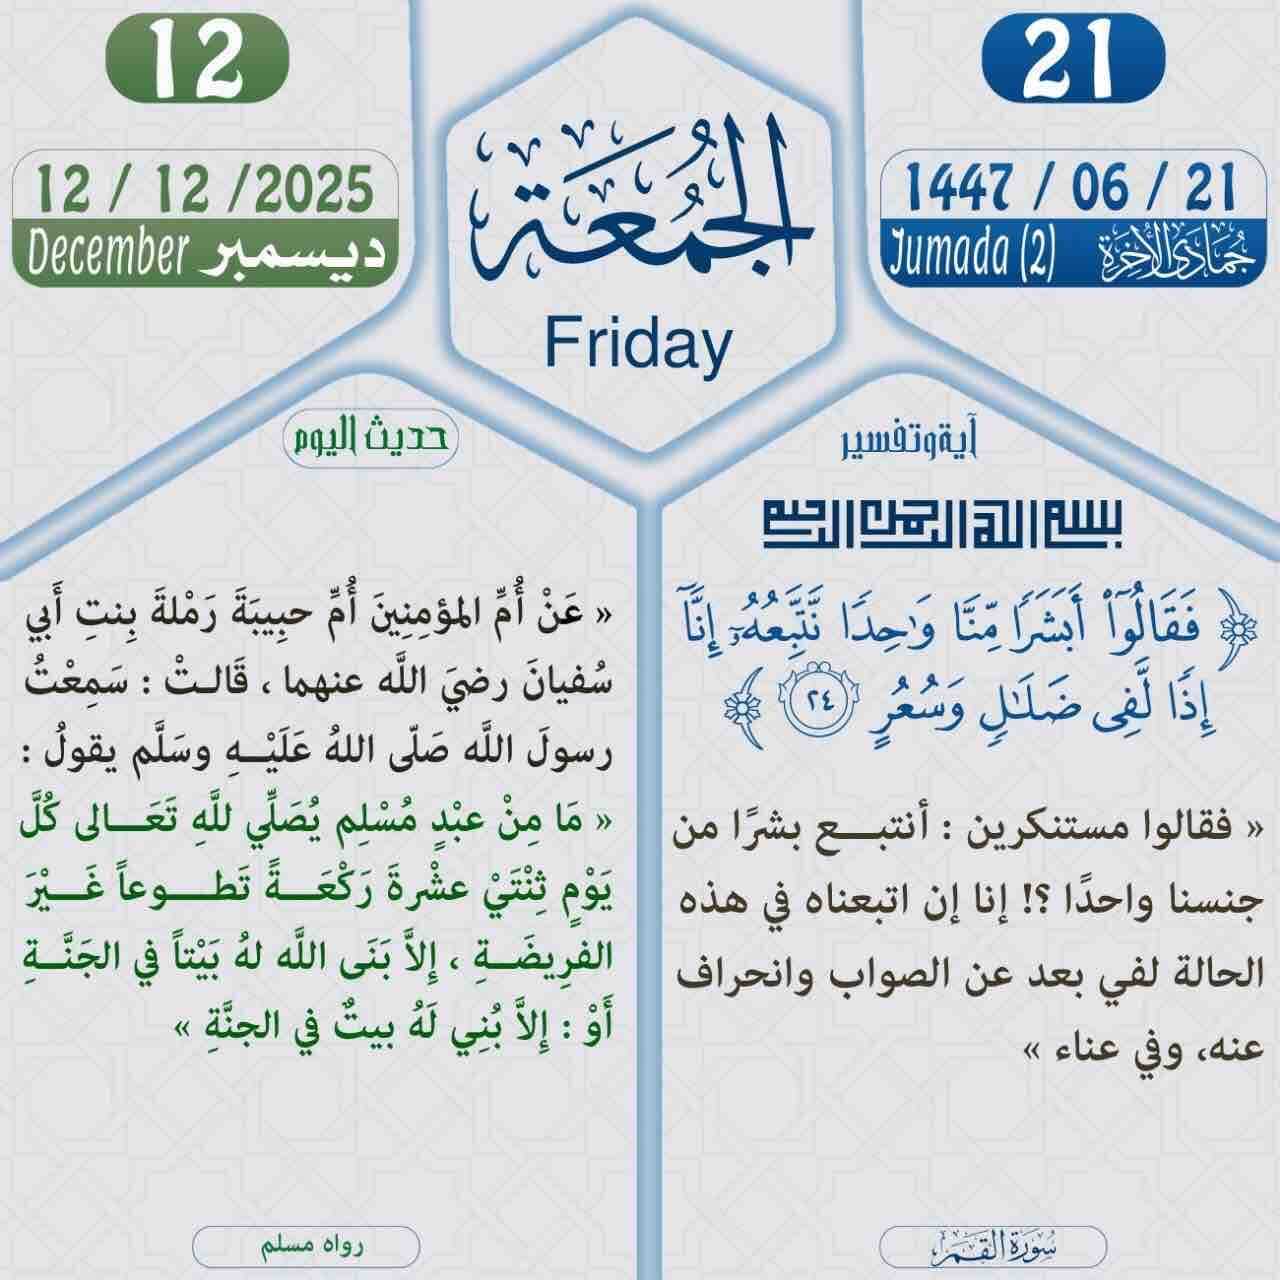 12
21
12 / 12 /2025
December ديسمبر
الجُمُعَة
Friday
1447 / 06 / 21
Jumada (2) جُمَادَى الْآخِرَة
حديث اليوم
آية وتفسير
بسم الله الرحمن الرحيم
﴿ فَقَالُوٓا۟ أَبَشَرًۭا مِّنَّا وَٰحِدًۭا نَّتَّبِعُهُۥٓ إِنَّآ
إِذًۭا لَّفِى ضَلَٰلٍۢ وَسُعُرٍ ٢٤ ﴾
« فقالوا مستنكرين : أنتبـــع بشرًا من
جنسنا واحدًا ؟! إنا إن اتبعناه في هذه
الحالة لفي بعد عن الصواب وانحراف
عنه، وفي عناء »
سُورَةُ القَمَر
« عَنْ أُمِّ المؤمِنِينَ أُمِّ حبِيبَةَ رَمْلةَ بِنتِ أَبي
سُفيانَ رضيَ اللَّه عنهما ، قَالـتْ : سَمِعْتُ
رسولَ اللَّه صَلّى اللهُ عَلَيْــهِ وسَلَّم يقولُ :
« مَا مِنْ عبْدٍ مُسْلِم يُصَلِّي للَّهِ تَعَـــالى كُلَّ
يَوْمٍ ثِنْتَيْ عشْرةَ رَكْعَـــةً تَطــــوعاً غَـــيْرَ
الفرِيضَــةِ ، إِلاَّ بَنَى اللَّه لهُ بَيْتاً في الجَنَّـــةِ
أَوْ : إِلاَّ بُنِي لَهُ بيتٌ في الجنَّةِ »
رواه مسلم